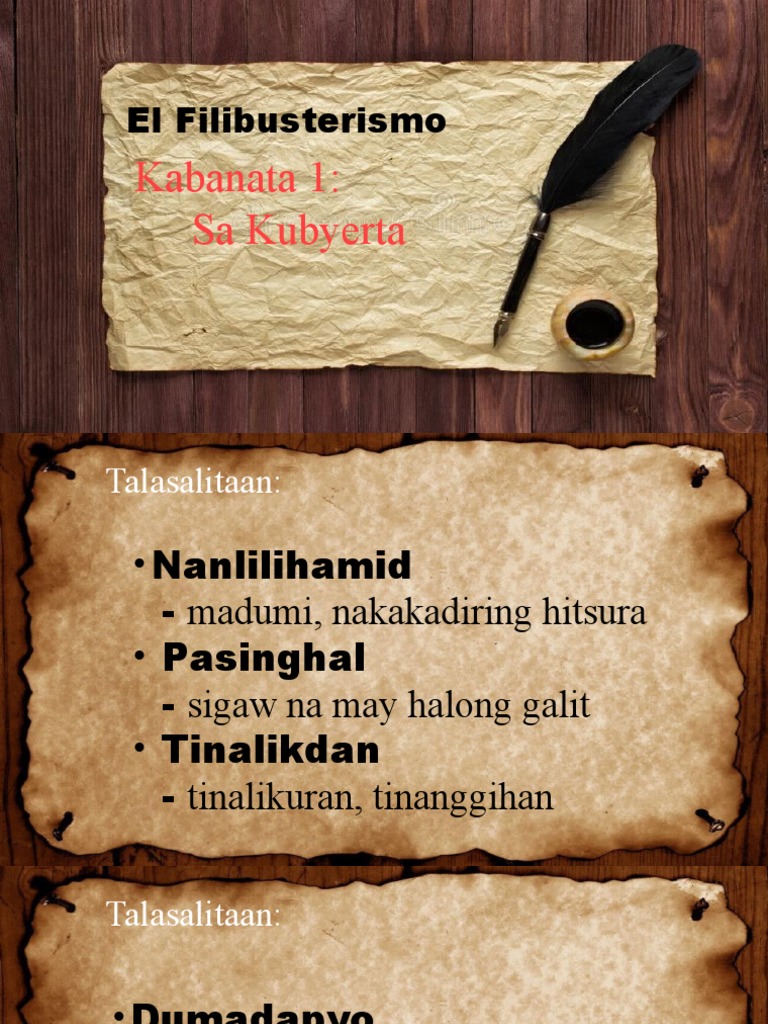 El Filibusterismo
Kabanata 1:
Sa Kubyerta
Talasalitaan:
•Nanlilihamid
- madumi, nakakadiring hitsura
• Pasinghal
- sigaw na may halong galit
• Tinalikdan
- tinalikuran, tinanggihan
Talasalitaan:
•Dumadapyo